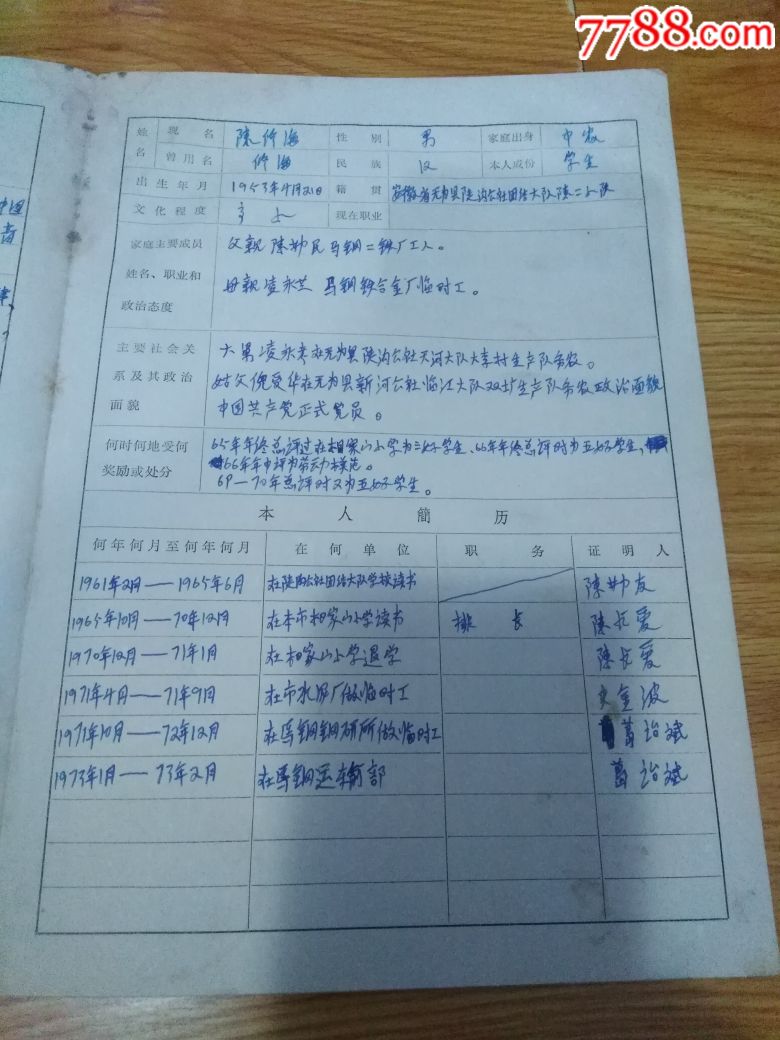 7788.com
中国
姓名 现名 陈修海 性别 男 家庭出身 中农
曾用名 修海 民族 汉 本人成份 学生
出生年月 1953年4月21日 籍贯 安徽省无为县陡沟公社团结大队陈二小队
文化程度 高小 现在职业
家庭主要成员姓名、职业和政治态度
父亲 陈勤民 马钢二铁厂工人。
母亲 凌永兰 马钢铁合金厂临时工。
主要社会关系及其政治面貌
大舅凌永 在无为县陡沟公社天河大队大李村生产队务农。
姑父倪受华在无为县新河公社临江大队双圹生产队务农政治面貌
中国共产党正式党员。
何时何地受何奖励或处分
65年年终总评过在相家山小学为三好学生、66年年终总评时为五好学生,
66年年中评为劳动模范。
69—70年总评时又为五好学生。
本人简历
何年何月至何年何月 在何单位 职务 证明人
1961年2月——1965年6月 在陡沟公社团结大队学校读书 陈勤友
1965年10月——70年12月 在本市相家山小学读书 排长 陈长爱
1970年12月——71年1月 在相家山小学退学 陈长爱
1971年4月——71年9月 在市水泥厂做临时工 金波
1971年10月——72年12月 在马钢钢研所做临时工 葛治斌
1973年1月——73年2月 在马钢运输部 葛治斌